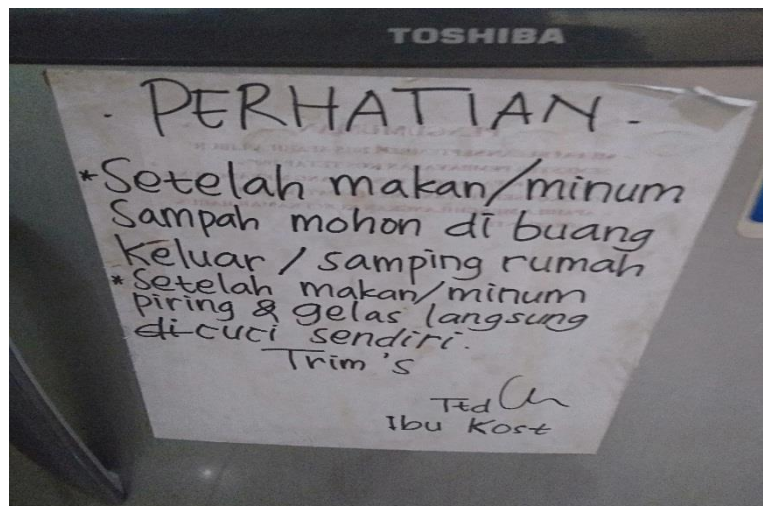 TOSHIBA
- PERHATIAN -
* Setelah makan/minum
Sampah mohon di buang
Keluar / samping rumah
* Setelah makan/minum
piring & gelas langsung
di cuci sendiri.
Trim's
Ttd
Ibu Kost